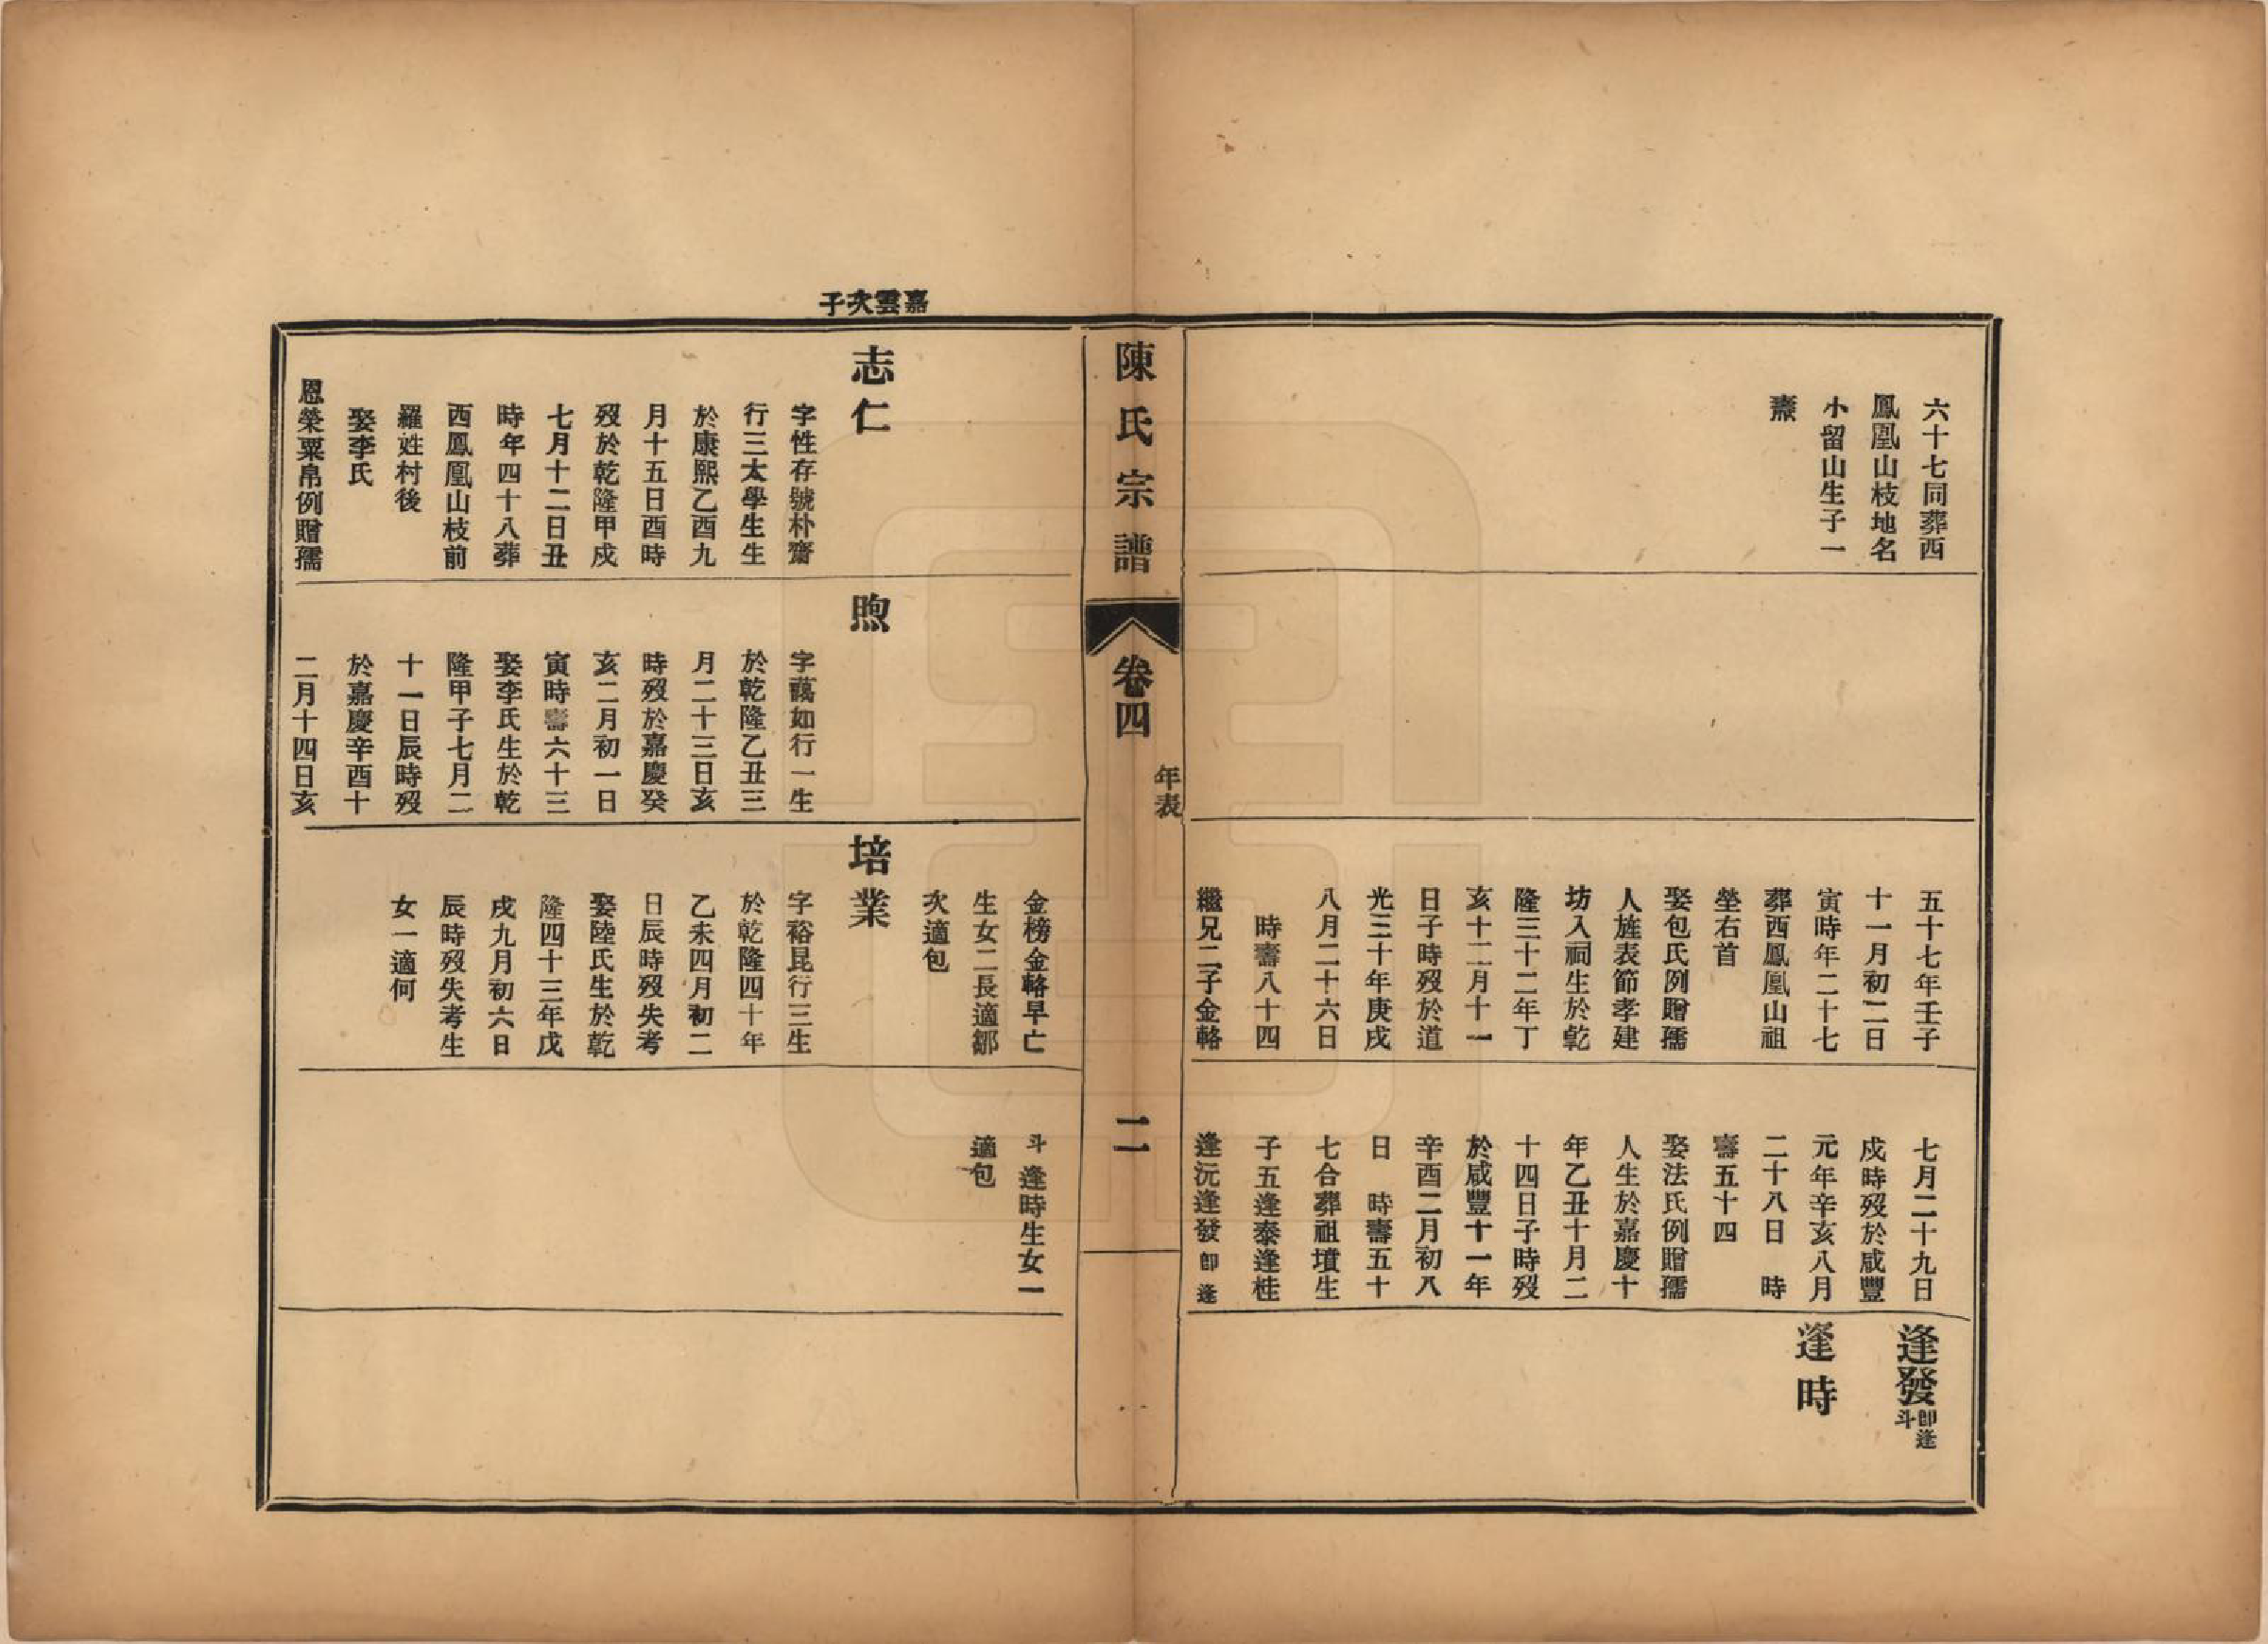 六十七同葬西
鳳凰山枝地名
小留山生子一
燾
五十七年壬子
十一月初二日
寅時年二十七
葬西鳳凰山祖
塋右首
娶包氏例贈孺
人旌表節孝建
坊入祠生於乾
隆三十二年丁
亥十二月十一
日子時歿於道
光三十年庚戌
八月二十六日
時壽八十四
繼兄二子金輅
七月二十九日
戌時歿於咸豐
元年辛亥八月
二十八日　時
壽五十四
娶法氏例贈孺
人生於嘉慶十
年乙丑十月二
十四日子時歿
於咸豐十一年
辛酉二月初八
日　時壽五十
七合葬祖墳生
子五逢泰逢桂
逢沅逢發即逢
逢發即逢斗
逢時
陳氏宗譜
卷四
年表
二
嘉雲次子
志仁
字性存號朴齋
行三太學生生
於康熙乙酉九
月十五日酉時
歿於乾隆甲戌
七月十二日丑
時年四十八葬
西鳳凰山枝前
羅姓村後
娶李氏
恩榮粟帛例贈孺
煦
字藹如行一生
於乾隆乙丑三
月二十三日亥
時歿於嘉慶癸
亥二月初一日
寅時壽六十三
娶李氏生於乾
隆甲子七月二
十一日辰時歿
於嘉慶辛酉十
二月十四日亥
金榜金輅早亡
生女二長適鄒
次適包
培業
字裕昆行三生
於乾隆四十年
乙未四月初二
日辰時歿失考
娶陸氏生於乾
隆四十三年戊
戌九月初六日
辰時歿失考生
女一適何
斗逢時生女一
適包